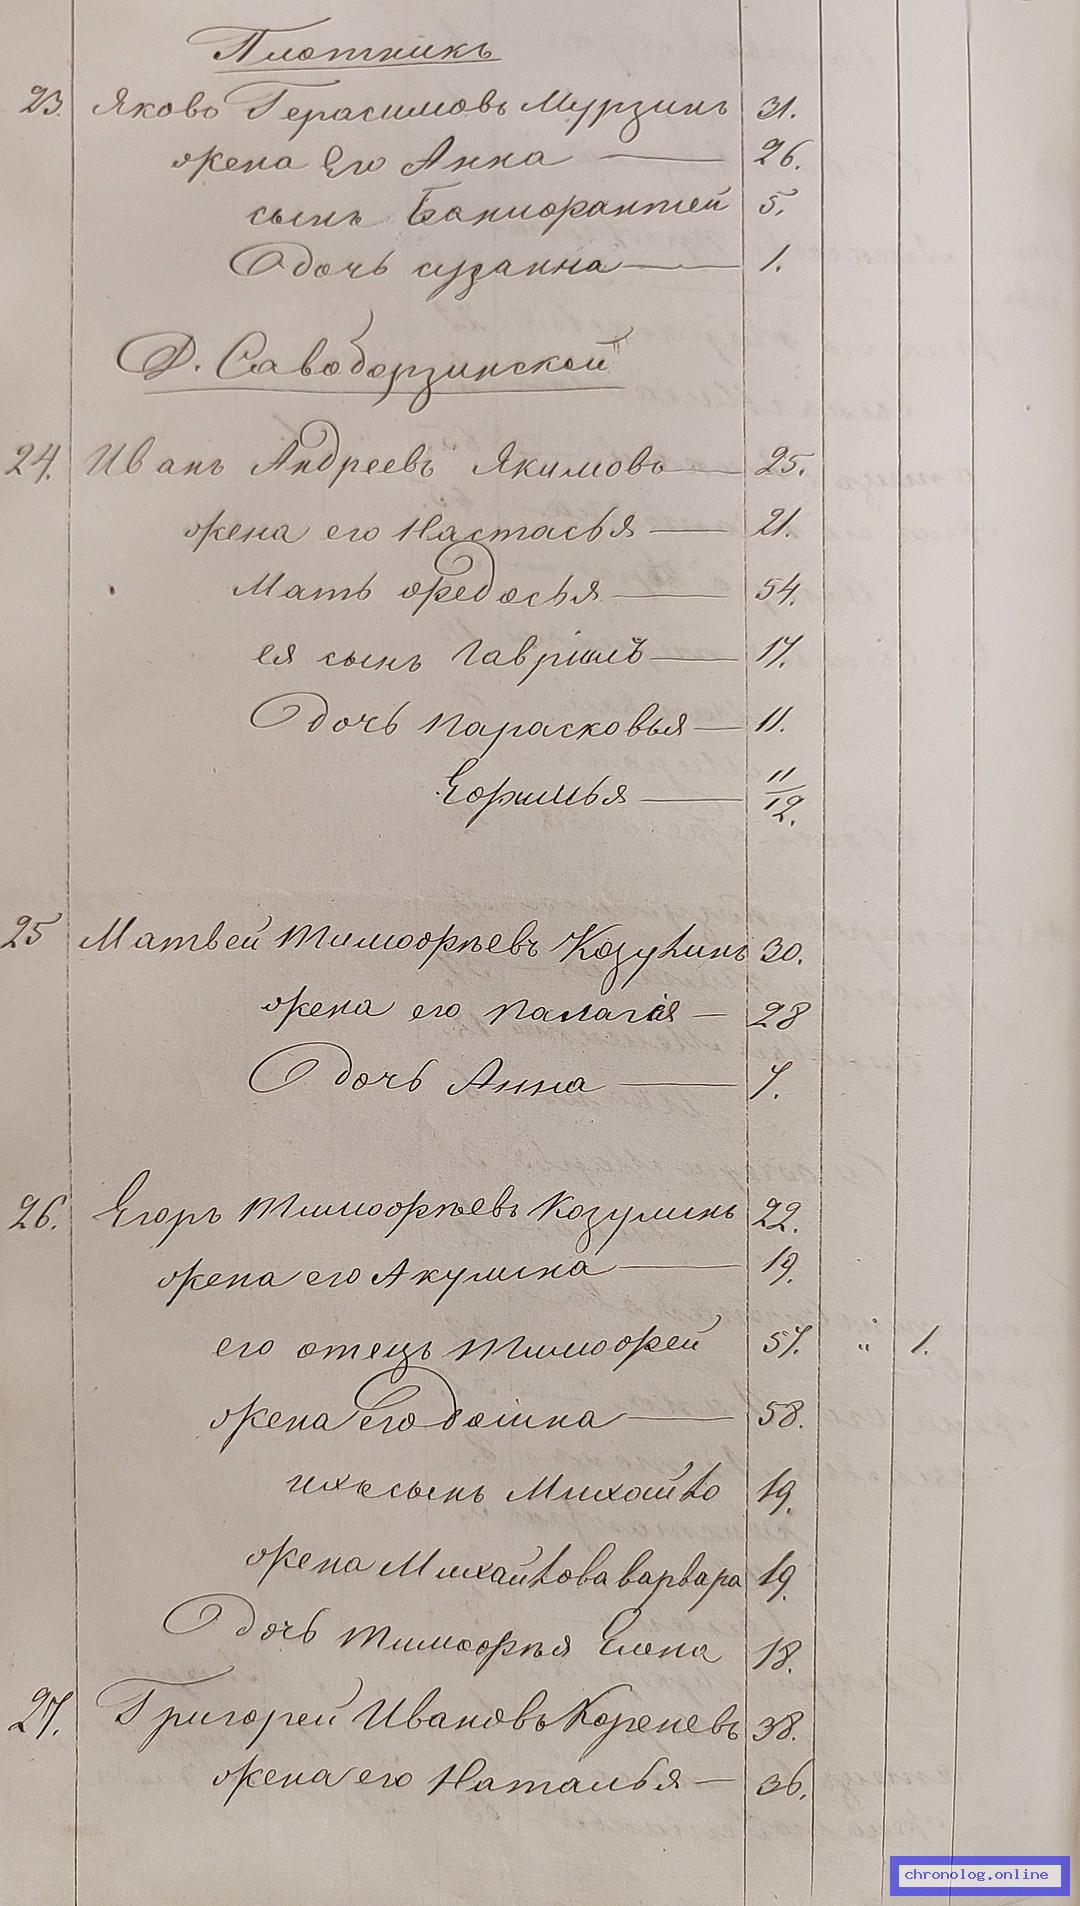 Плотникъ
23. Яковъ Герасимовъ Мурзинъ 31.
жена Его Анна — 26.
сынъ 5.
дочь сузанна — 1.
Д. Савоборзинской
24. Иванъ Андреевъ Якимовъ — 25.
жена его Настасья — 21.
Мать федосья — 54.
ея сынъ гаврiилъ — 17.
дочь парасковья — 11.
Ефимья — 11/12.
25 Матвей тимофѣевъ 30.
жена его палагiя — 28
дочь Анна — 7.
26. Егоръ тимофѣевъ Козулинъ 22.
жена его Акулина — 19.
его отецъ тимофей 57. " 1.
жена его домна — 58.
ихъ сынъ Михайло 19.
жена Михайлова варвара 19.
дочь тимофѣя Елена 18.
27. Григорей Ивановъ Кореневъ 38.
жена его Наталья — 36.
chronolog.online